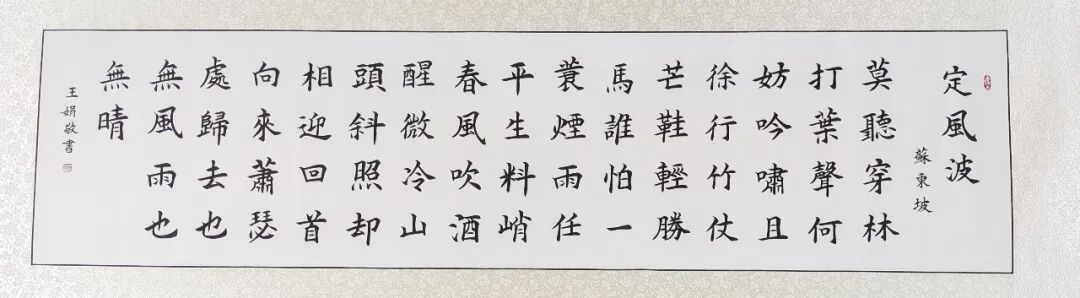 定風波
蘇東坡
莫聽穿林
打葉聲何
妨吟嘯且
徐行竹仗
芒鞋輕勝
馬誰怕一
蓑煙雨任
平生料峭
春風吹酒
醒微冷山
頭斜照却
相迎回首
向來蕭瑟
處歸去也
無風雨也
無晴
王娟敬書